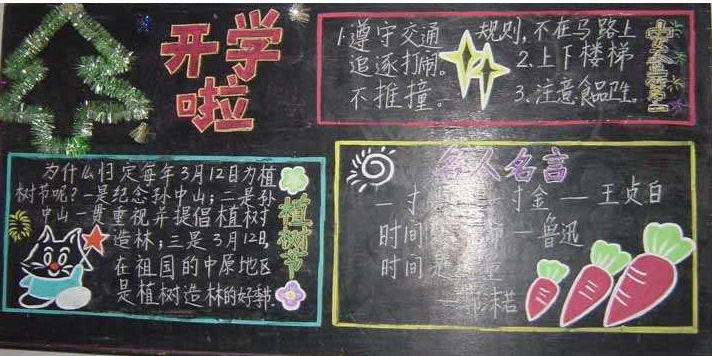 开学
啦
1.遵守交通 规则,不在马路上
追逐打闹。 2.上下楼梯
不推撞。 3.注意食品卫生。
为什么归定每年3月12日为植
树节呢?一是纪念孙中山;二是孙
中山一贯重视并提倡植树
造林;三是3月12日,
在祖国的中原地区
是植树造林的好季节.
植树节
名人名言
一寸 寸金 — 王贞白
时间 — 鲁迅
时间是
沫若